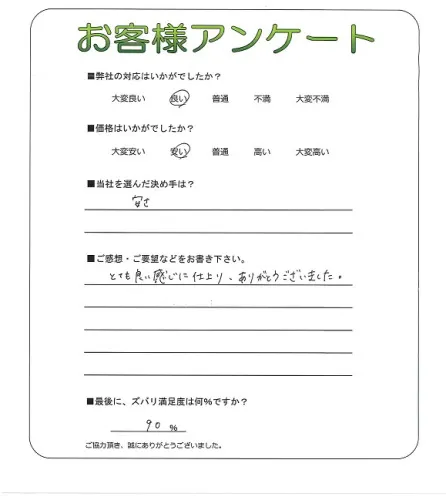 お客様アンケート
■弊社の対応はいかがでしたか？
大変良い 良い 普通 不満 大変不満
■価格はいかがでしたか？
大変安い 安い 普通 高い 大変高い
■当社を選んだ決め手は？
安さ
■ご感想・ご要望などをお書き下さい。
とても良い感じに仕上り、ありがとうございました。
■最後に、ズバリ満足度は何％ですか？
90 ％
ご協力頂き、誠にありがとうございました。